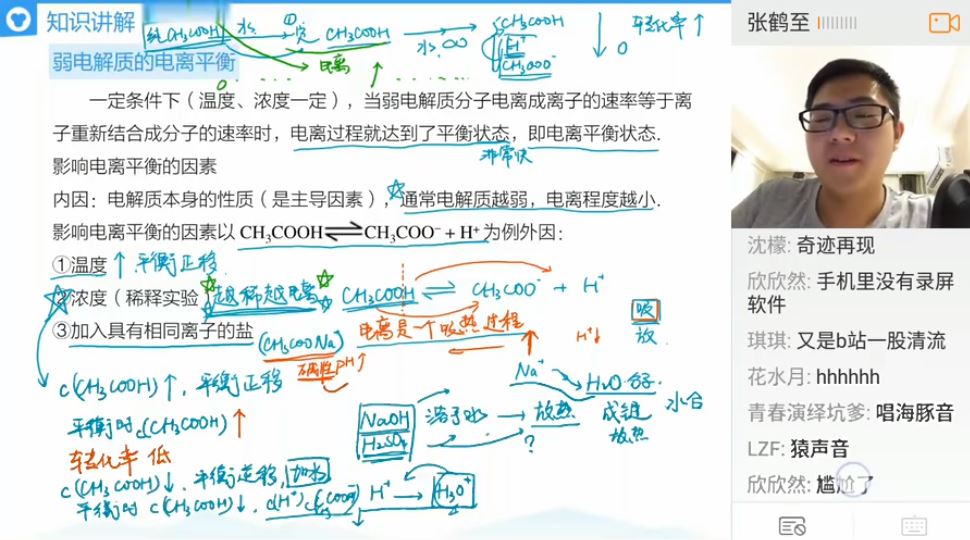 知识讲解
弱电解质的电离平衡
纯CH₃COOH 水 CH₃COOH 水 ∞ CH₃COOH
H⁺
CH₃COO⁻
电离
0
转化率↑
0
一定条件下（温度、浓度一定），当弱电解质分子电离成离子的速率等于离
子重新结合成分子的速率时，电离过程就达到了平衡状态，即电离平衡状态.
非常快
影响电离平衡的因素
内因：电解质本身的性质（是主导因素），☆通常电解质越弱，电离程度越小.
影响电离平衡的因素以 CH₃COOH⇌CH₃COO⁻ + H⁺ 为例外因：
①温度↑ 平衡正移.
②浓度（稀释实验）越稀越电离 CH₃COOH ⇌ CH₃COO⁻ + H⁺
③加入具有相同离子的盐 (CH₃COONa) 电离是一个吸热过程 H⁺↓
碱性 pH↑
吸
放
c(CH₃COOH)↑, 平衡正移
平衡时 c(CH₃COOH)↑
转化率 低
c(CH₃COOH)↓, 平衡逆移, 加水
平衡时 c(CH₃COOH)↓, c(H⁺)
H⁺ → H₃O⁺
NaOH
H₂SO₄
溶于水 → 放热
?
Na⁺ H₂O分子.
成键
放热
水合
张鹤至
沈檬: 奇迹再现
欣欣然: 手机里没有录屏
软件
琪琪: 又是b站一股清流
花水月: hhhhhh
青春演绎坑爹: 唱海豚音
LZF: 猿声音
欣欣然: 尴尬了